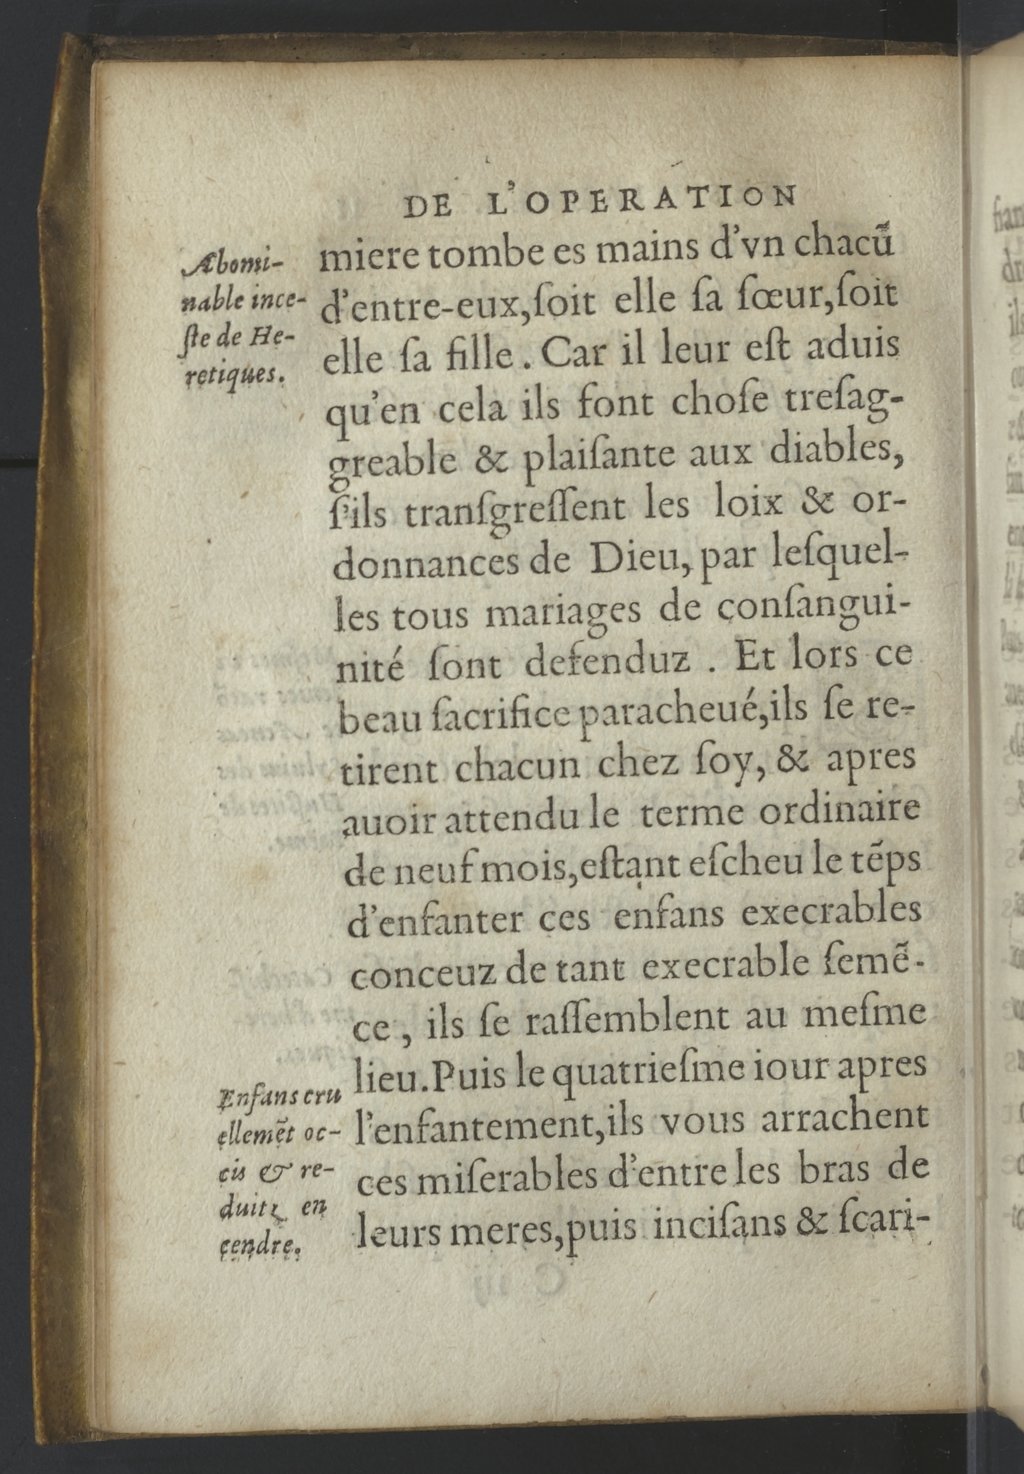 DE L'OPERATION
Æbomi-
nable ince-
ſte de He-
retiques.
miere tombe es mains d'vn chacũ
d'entre-eux,ſoit elle ſa ſœur,ſoit
elle ſa fille. Car il leur eſt aduis
qu'en cela ils font choſe treſag-
greable & plaiſante aux diables,
ſ'ils tranſgreſſent les loix & or-
donnances de Dieu, par leſquel-
les tous mariages de conſangui-
nité ſont defenduz . Et lors ce
beau ſacrifice paracheué,ils ſe re-
tirent chacun chez ſoy, & apres
auoir attendu le terme ordinaire
de neuf mois,eſtant eſcheu le tẽps
d'enfanter ces enfans execrables
conceuz de tant execrable ſemẽ-
ce, ils ſe raſſemblent au meſme
lieu.Puis le quatrieſme iour apres
l'enfantement,ils vous arrachent
ces miſerables d'entre les bras de
leurs meres,puis inciſans & ſcari-
Enfans cru
ellemẽt oc-
cis & re-
duitz en
cendre.